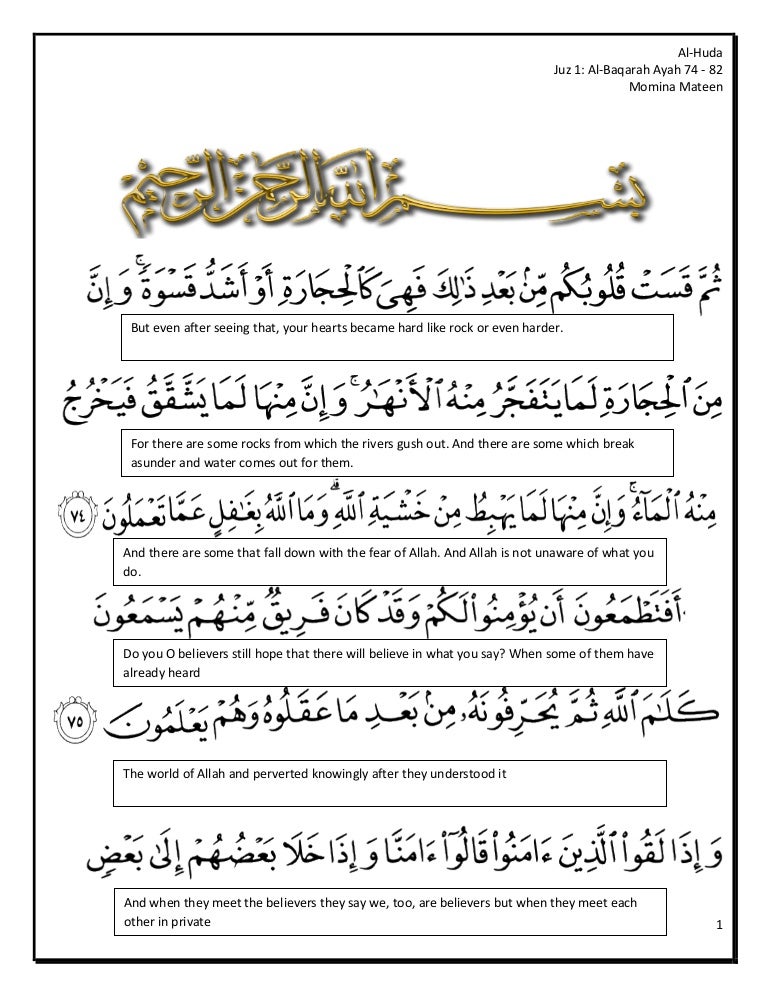 Al-Huda
Juz 1: Al-Baqarah Ayah 74 - 82
Momina Mateen
بِسْمِ اللَّهِ الرَّحْمَٰنِ الرَّحِيمِ
ثُمَّ قَسَتْ قُلُوبُكُم مِّنۢ بَعْدِ ذَٰلِكَ فَهِىَ كَٱلْحِجَارَةِ أَوْ أَشَدُّ قَسْوَةً ۚ وَإِنَّ
But even after seeing that, your hearts became hard like rock or even harder.
مِنَ ٱلْحِجَارَةِ لَمَا يَتَفَجَّرُ مِنْهُ ٱلْأَنْهَـٰرُ ۚ وَإِنَّ مِنْهَا لَمَا يَشَّقَّقُ فَيَخْرُجُ
For there are some rocks from which the rivers gush out. And there are some which break
asunder and water comes out for them.
مِنْهُ ٱلْمَآءُ ۚ وَإِنَّ مِنْهَا لَمَا يَهْبِطُ مِنْ خَشْيَةِ ٱللَّهِ ۗ وَمَا ٱللَّهُ بِغَـٰفِلٍ عَمَّا تَعْمَلُونَ ٧٤
And there are some that fall down with the fear of Allah. And Allah is not unaware of what you
do.
أَفَتَطْمَعُونَ أَن يُؤْمِنُوا۟ لَكُمْ وَقَدْ كَانَ فَرِيقٌ مِّنْهُمْ يَسْمَعُونَ
Do you O believers still hope that there will believe in what you say? When some of them have
already heard
كَلَـٰمَ ٱللَّهِ ثُمَّ يُحَرِّفُونَهُۥ مِنۢ بَعْدِ مَا عَقَلُوهُ وَهُمْ يَعْلَمُونَ ٧٥
The world of Allah and perverted knowingly after they understood it
وَإِذَا لَقُوا۟ ٱلَّذِينَ ءَامَنُوا۟ قَالُوٓا۟ ءَامَنَّا وَإِذَا خَلَا بَعْضُهُمْ إِلَىٰ بَعْضٍ
And when they meet the believers they say we, too, are believers but when they meet each
other in private
1